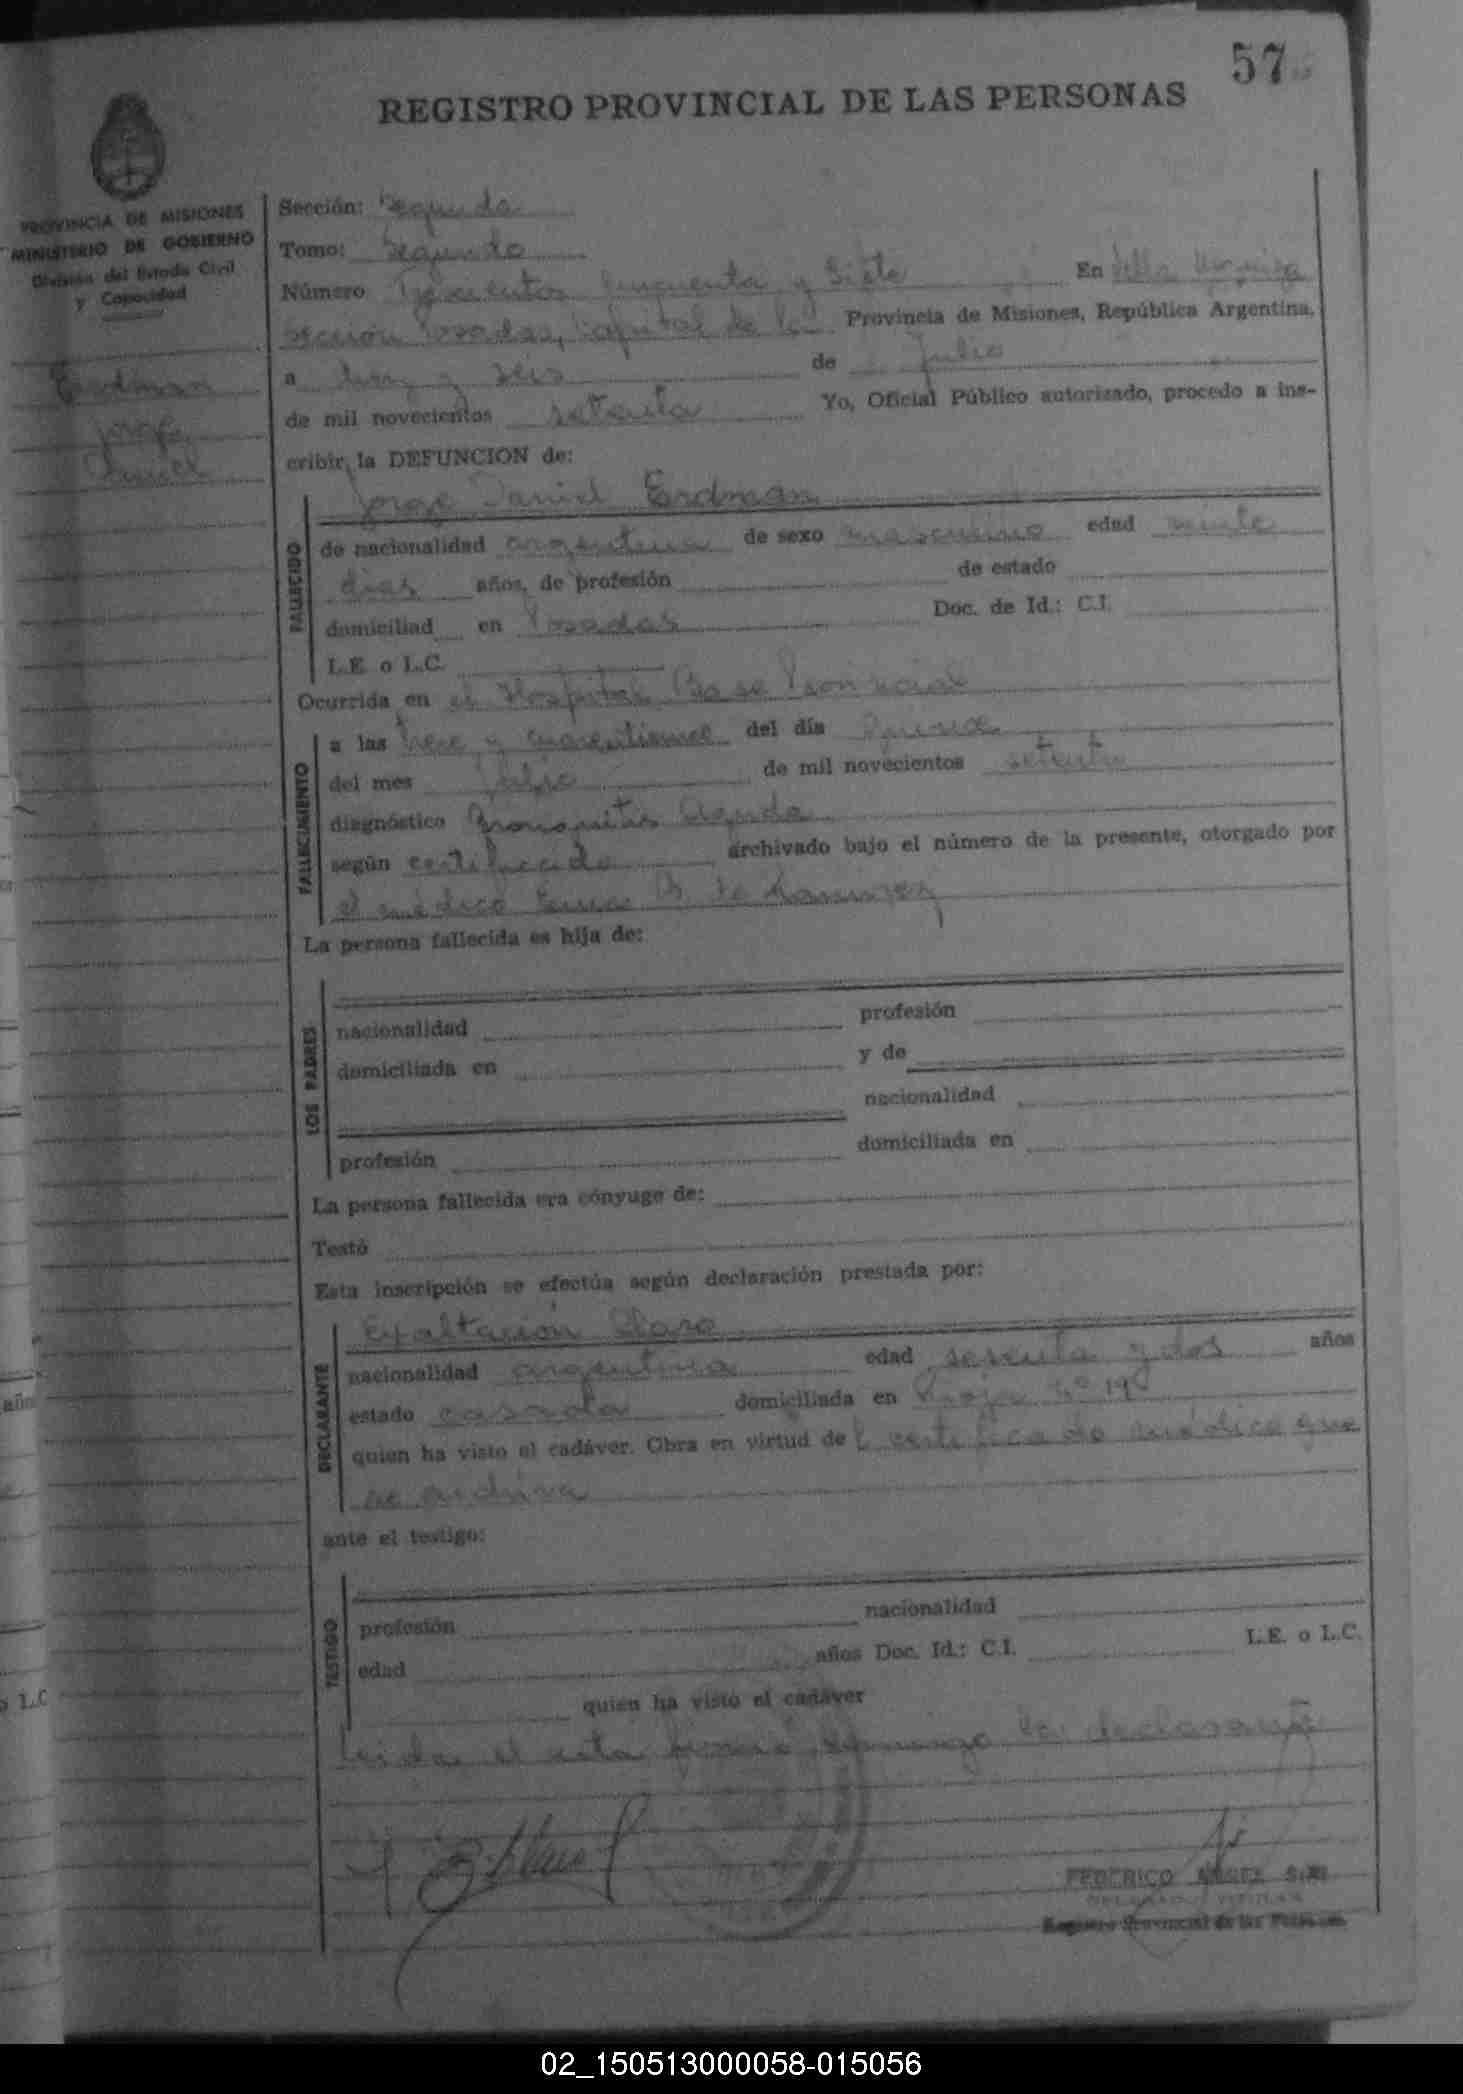 57
REGISTRO PROVINCIAL DE LAS PERSONAS
PROVINCIA DE MISIONES
MINISTERIO DE GOBIERNO
División del Estado Civil
y Capacidad
Erdman
Jorge
Daniel
Sección: Segunda
Tomo: Segundo
Número cincuenta y Siete En Villa Urquiza
sección Posadas, Capital de la Provincia de Misiones, República Argentina,
a diez y seis de Julio
de mil novecientos setenta Yo, Oficial Público autorizado, procedo a ins-
cribir la DEFUNCION de:
Jorge Daniel Erdman
FALLECIDO
de nacionalidad argentina de sexo masculino edad veinte
días años, de profesión de estado
domiciliad en Posadas Doc. de Id.: C.I.
L.E. o L.C.
Ocurrida en el Hospital Base Provincial
FALLECIMIENTO
a las trece y del día quince
del mes Julio de mil novecientos setenta
diagnóstico Bronquitis Aguda
según certificado archivado bajo el número de la presente, otorgado por
el médico de Ramirez
La persona fallecida es hija de:
LOS PADRES
nacionalidad profesión
domiciliada en y de
nacionalidad
profesión domiciliada en
La persona fallecida era cónyuge de:
Testó
Esta inscripción se efectúa según declaración prestada por:
DECLARANTE
Exaltación Claro
nacionalidad argentina edad sesenta y dos años
estado casada domiciliada en Rioja Nº 19
quien ha visto el cadáver. Obra en virtud del certificado médico que
se archiva
ante el testigo:
TESTIGO
profesión nacionalidad
edad años Doc. Id.: C.I. L.E. o L.C.
quien ha visto el cadáver
Leida el acta firmó conmigo la declarante
FEDERICO ANGEL
Registro Provincial de las Personas
año
o L.C
02_150513000058-015056